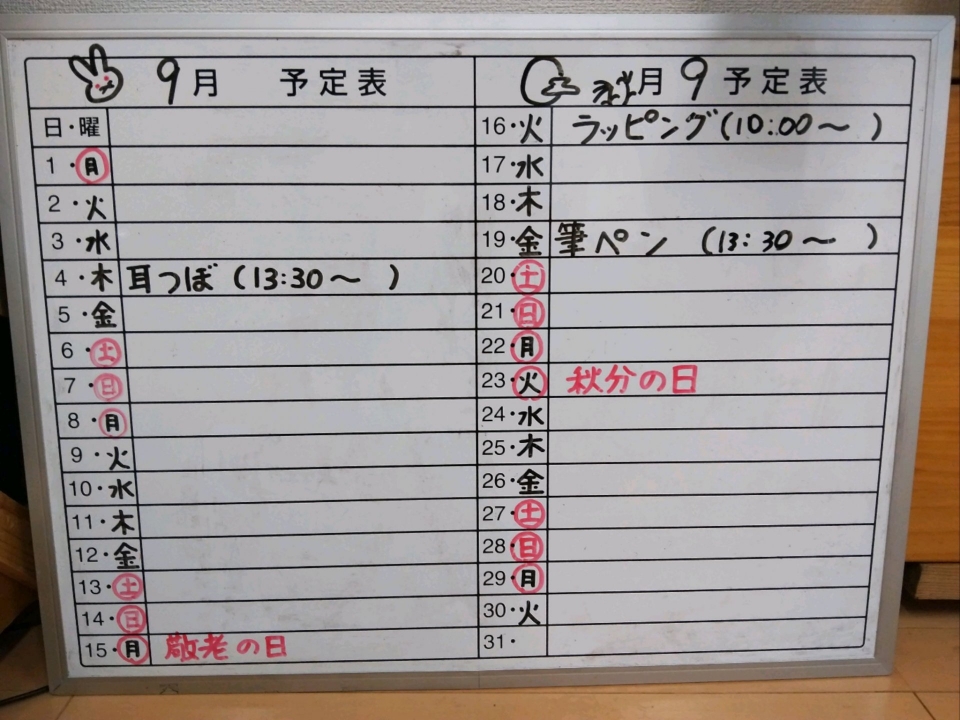 9月 予定表
日・曜
1・月
2・火
3・水
4・木 耳つぼ(13:30～ )
5・金
6・土
7・日
8・月
9・火
10・水
11・木
12・金
13・土
14・日
15・月 敬老の日
月 9 予定表
16・火 ラッピング(10:00～ )
17・水
18・木
19・金 筆ペン (13:30～ )
20・土
21・日
22・月
23・火 秋分の日
24・水
25・木
26・金
27・土
28・日
29・月
30・火
31・